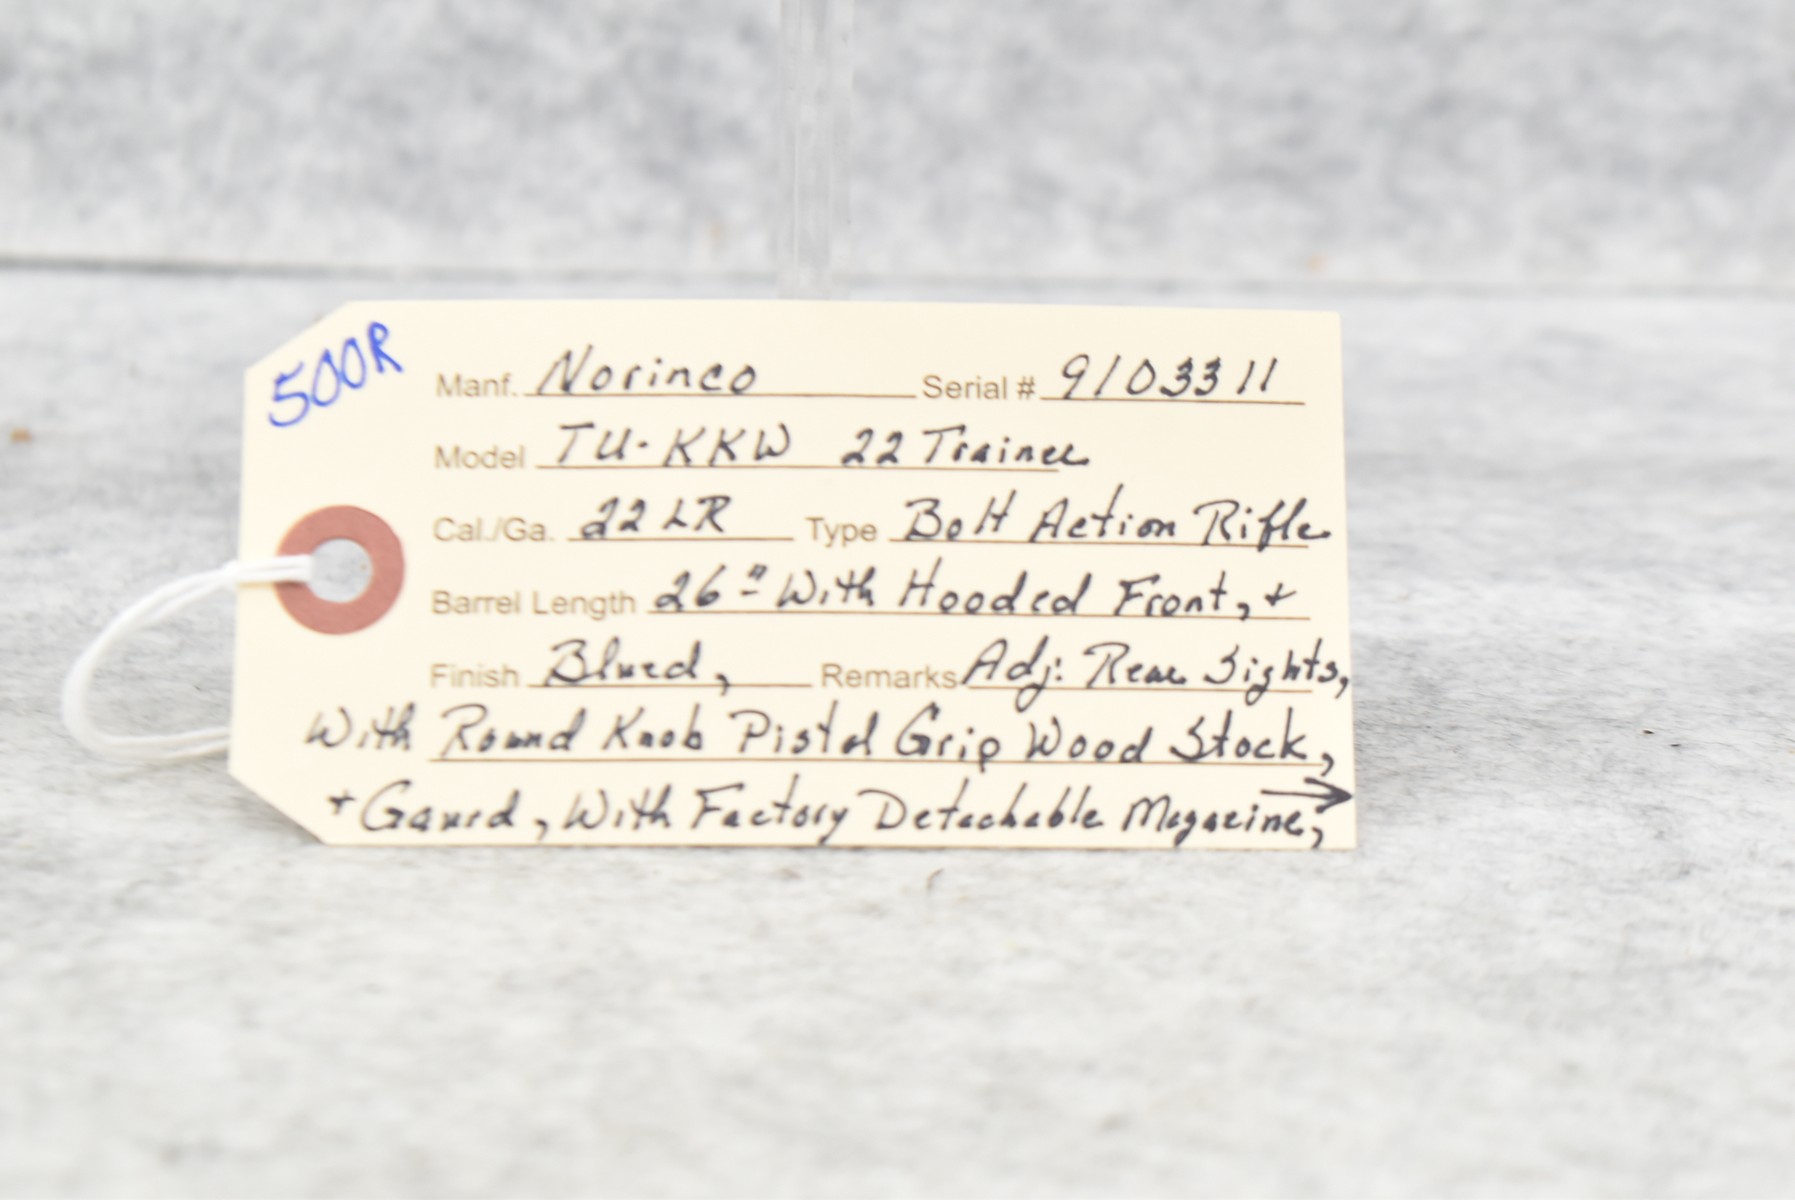 500R
Manf. Norinco Serial # 9103311
Model TU-KKW 22 Trainer
Cal./Ga. 22 LR Type Bolt Action Rifle
Barrel Length 26" With Hooded Front, +
Finish Blued, Remarks Adj: Rear Sights,
With Round Knob Pistol Grip Wood Stock,
+ Gaurd, With Factory Detachable Magazine, →